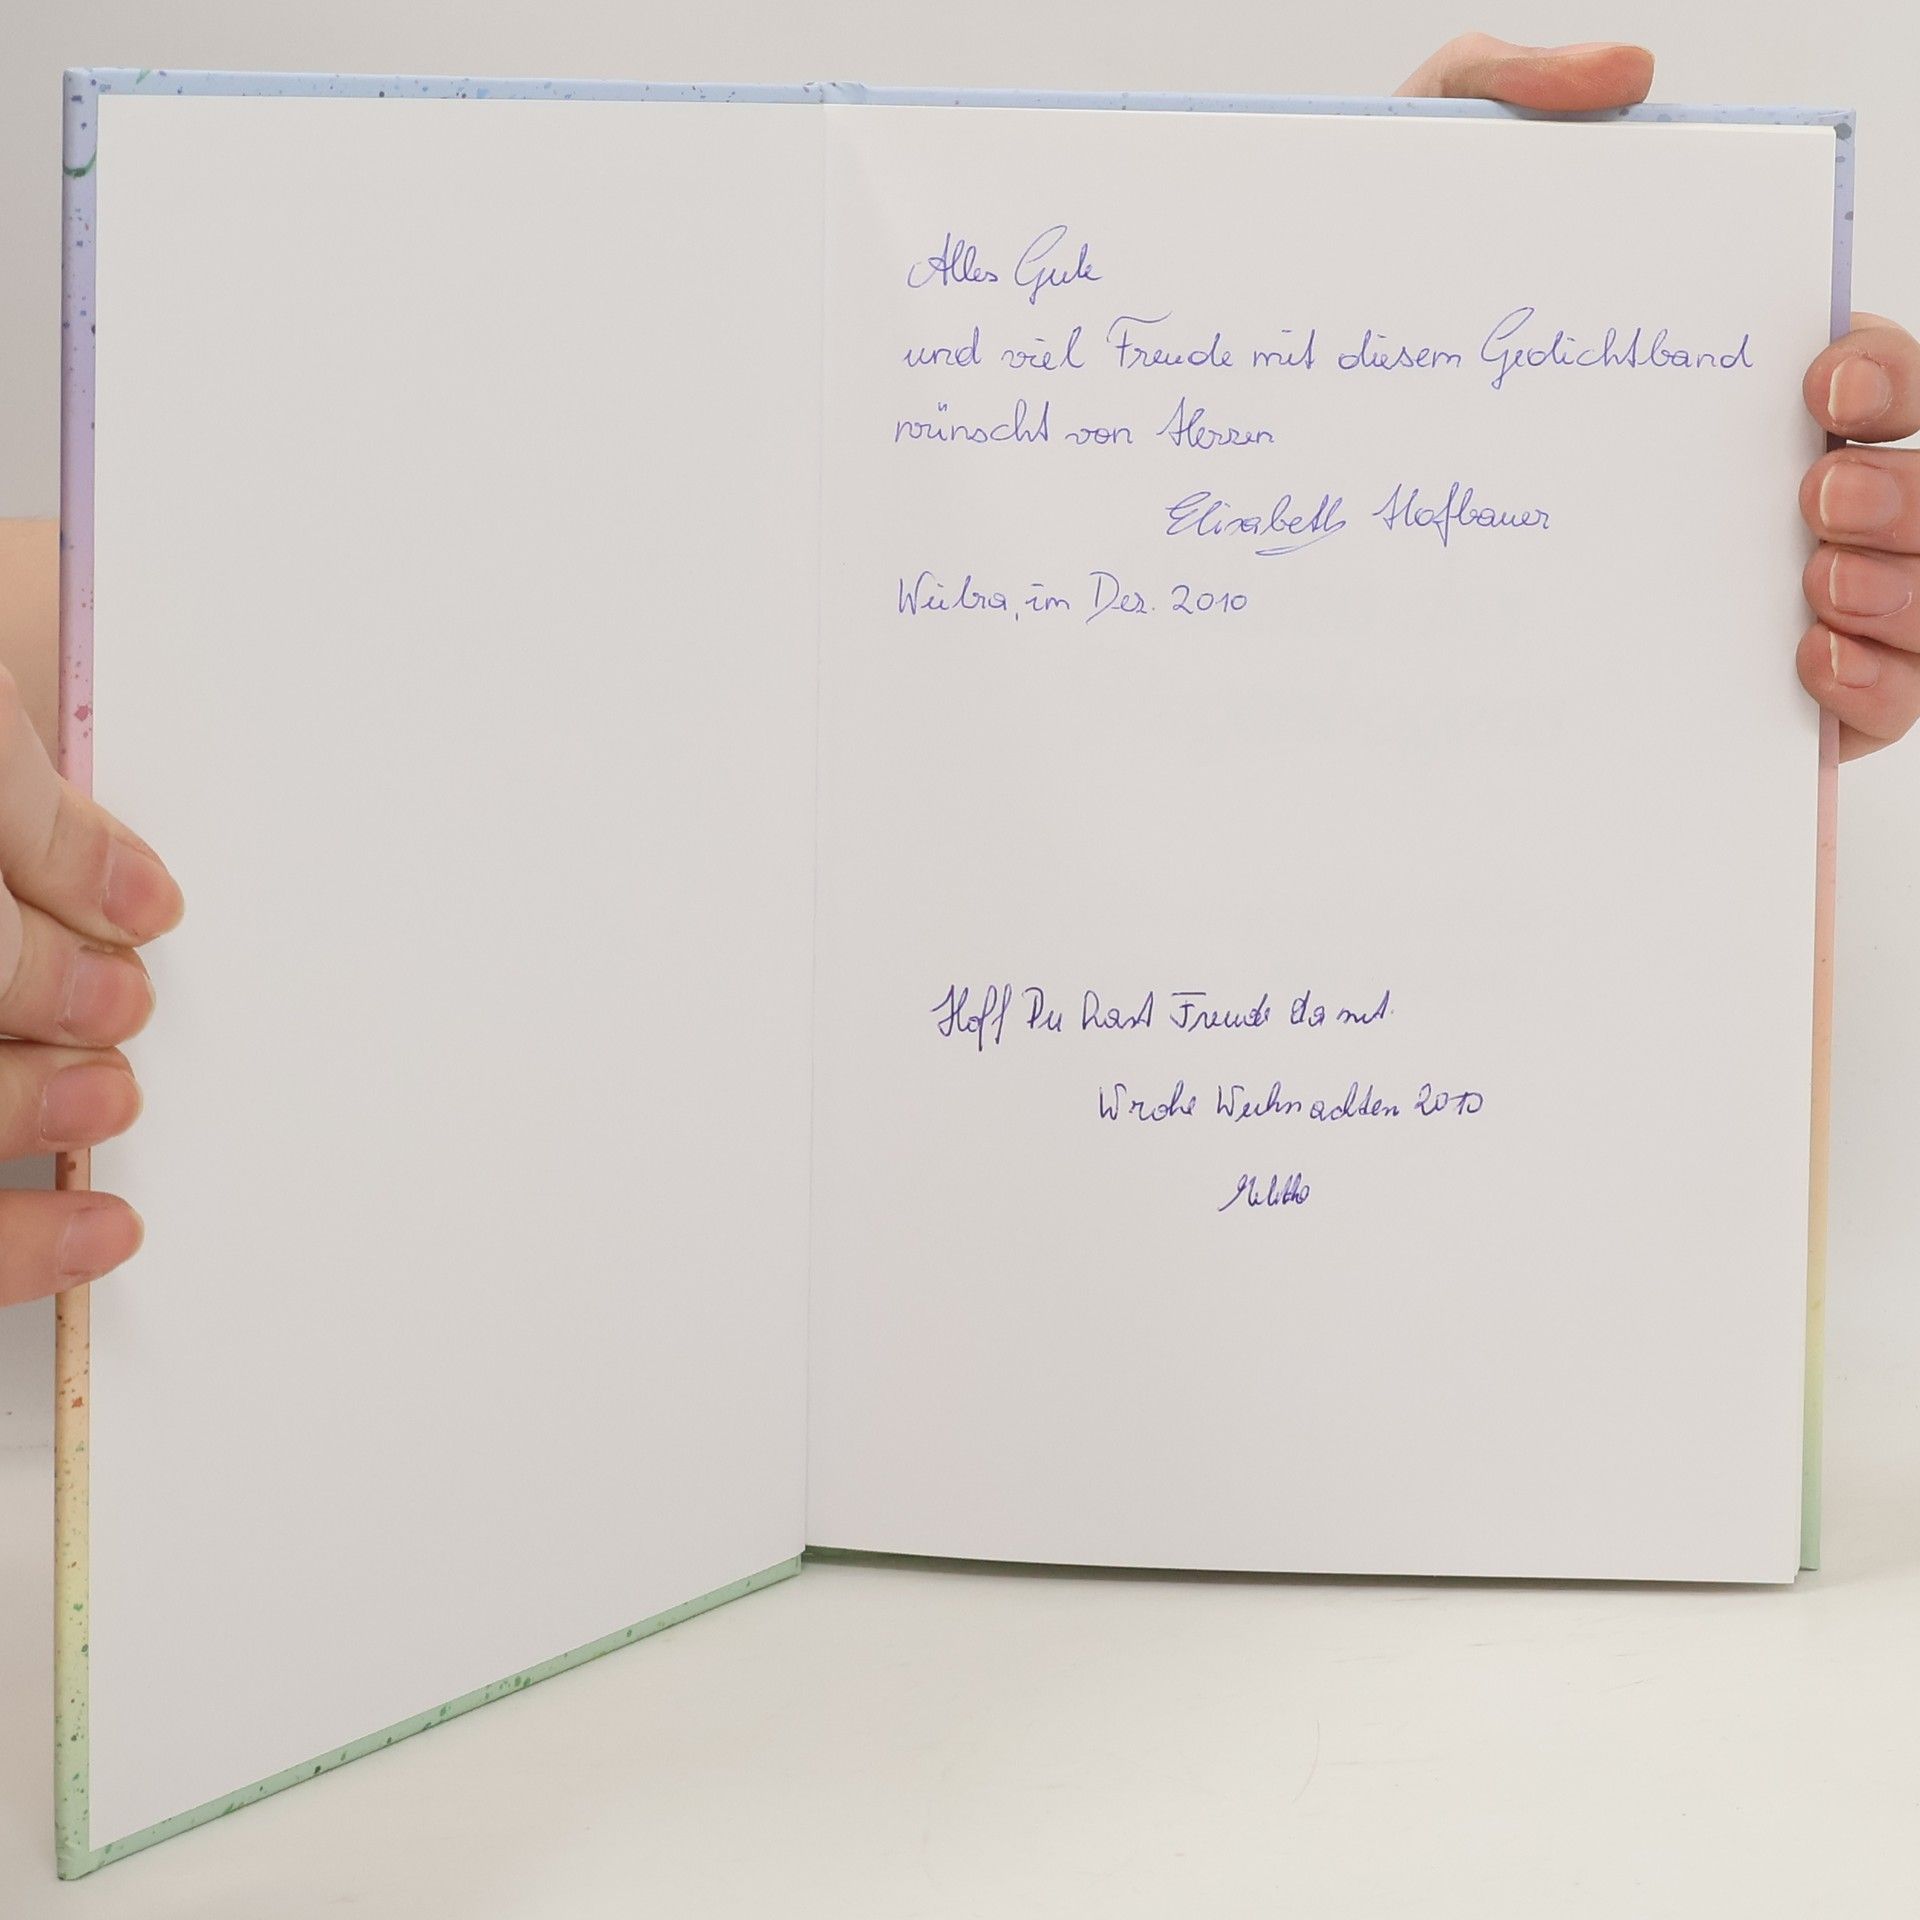 Alles Gute
und viel Freude mit diesem Gedichtband
wünscht von Herzen
Elisabeth Hofbauer
im Dez. 2010
Hoff Du hast Freude damit.
Weihnachten 2010